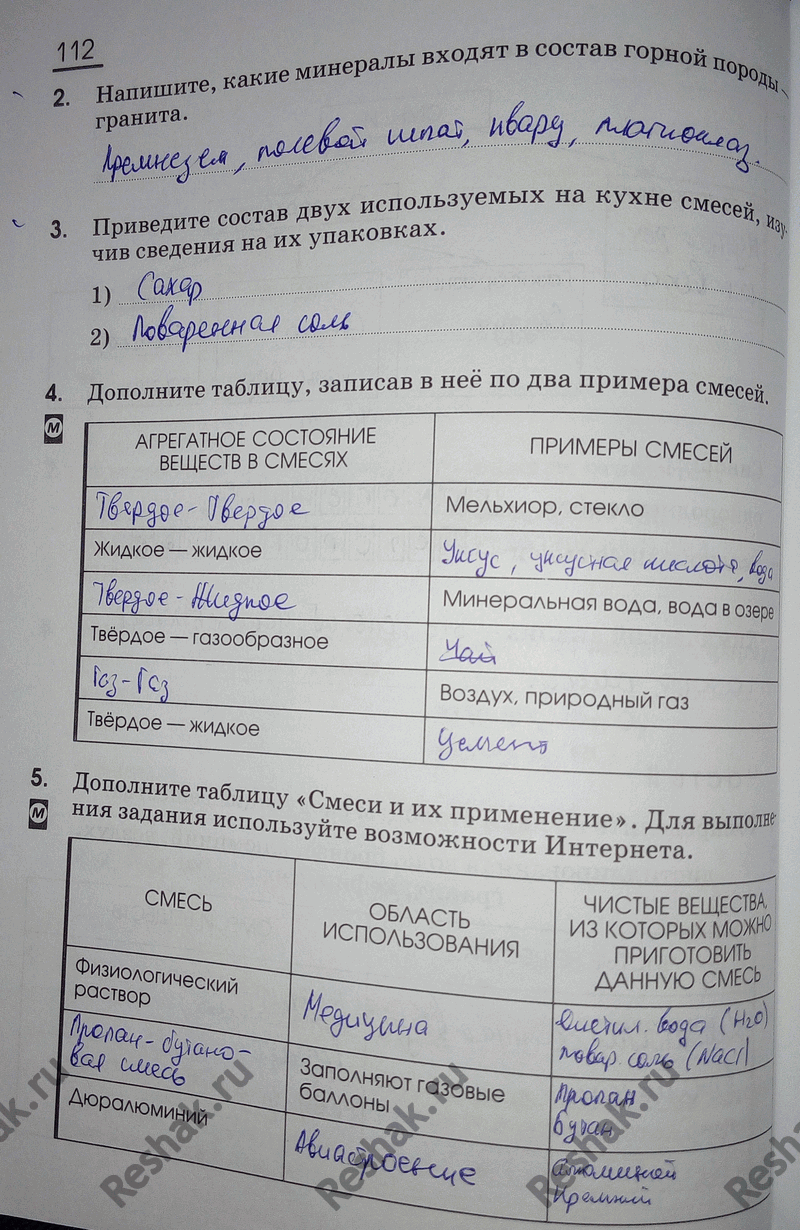 112
2. Напишите, какие минералы входят в состав горной породы
гранита.
Кремнезем, полевой шпат, кварц, плагиоклаз.
3. Приведите состав двух используемых на кухне смесей, изу-
чив сведения на их упаковках.
1) Сахар
2) Поваренная соль
4. Дополните таблицу, записав в неё по два примера смесей.
М
АГРЕГАТНОЕ СОСТОЯНИЕ
ВЕЩЕСТВ В СМЕСЯХ
ПРИМЕРЫ СМЕСЕЙ
Твердое - Твердое
Мельхиор, стекло
Жидкое — жидкое
Уксус, уксусная кислота, вода
Твердое - Жидкое
Минеральная вода, вода в озере
Твёрдое — газообразное
Чай
Газ - Газ
Воздух, природный газ
Твёрдое — жидкое
Цемент
5. Дополните таблицу «Смеси и их применение». Для выполне-
ния задания используйте возможности Интернета.
М
СМЕСЬ
ОБЛАСТЬ
ИСПОЛЬЗОВАНИЯ
ЧИСТЫЕ ВЕЩЕСТВА,
ИЗ КОТОРЫХ МОЖНО
ПРИГОТОВИТЬ
ДАННУЮ СМЕСЬ
Физиологический
раствор
Медицина
Дистил. вода (H2O)
повар. соль (NaCl)
Пропан-бутано-
вая смесь
Заполняют газовые
баллоны
Пропан
Бутан
Дюралюминий
Авиастроение
Алюминий
Кремний
Reshak.ru
Reshak.ru
Reshak.ru
Reshak.ru